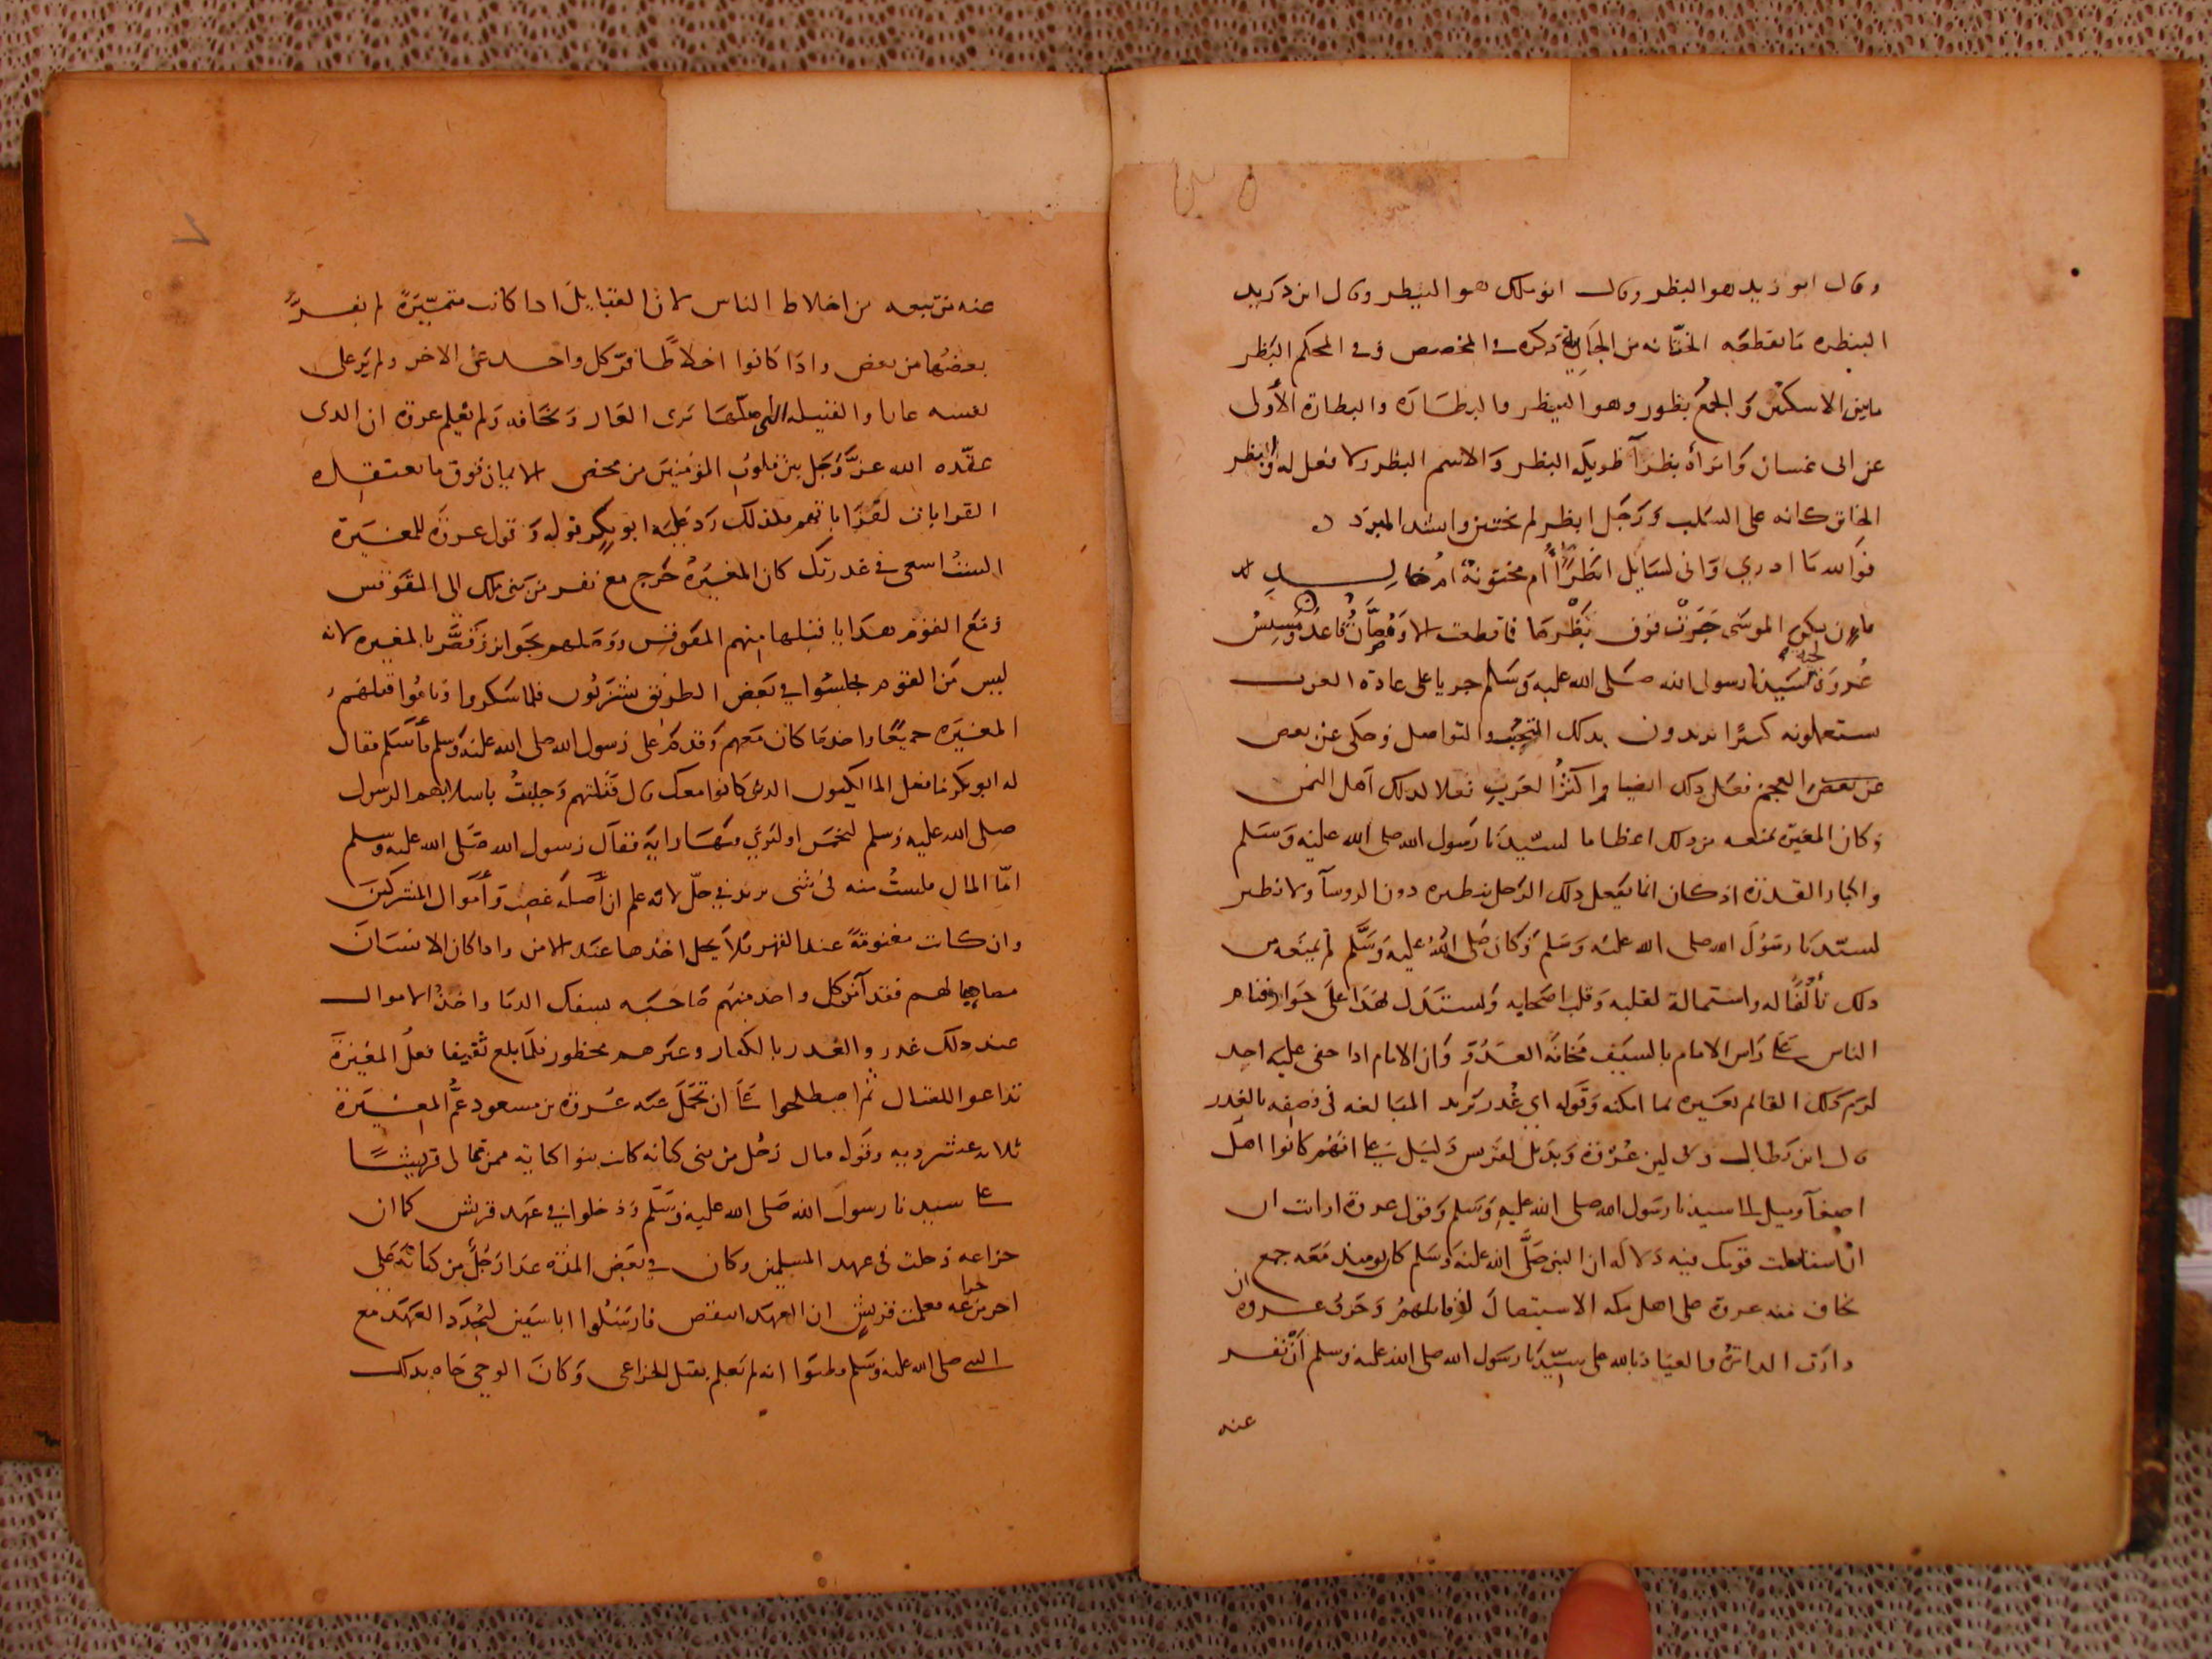 وقال ابو زيد هو البظر وقال ابو مالك هو البيظر وقال ابن دريد
البيظره ما تقطعه الختانه من الجارية ذكره في المخصص وفي المحكم البظر
ما بين الاسكتين والجمع بظور وهو البيظر والبظارة والبظارة الأولى
عن ابى غسان وامرأة بظرآ طويلة البظر والاسم البظر ولا فعل له وابظر
الخاتن كانه على السلب ورجل ابظر لم يختتن وانشد المبرد
فوالله ما ادري واني لسايل ابظرا أم مختونة ام خالد
فان يكن الموسى جرت فوق بظرها فما قطعت الا ومصان قاعد ومسيس
عروة لحية سيدنا رسول الله صلى الله عليه وسلم جريا على عادة العرب
يستعملونه كثيرا يريدون بذلك التحبب والتواصل وحكي عن بعض
عن بعض العجم فعل ذلك ايضا واكثر العرب فعلا لذلك اهل اليمن
وكان المغيرة يمنعه من ذلك اعظاما لسيدنا رسول الله صلى الله عليه وسلم
واكبارا لقدره اذ كان انما يفعل ذلك الرجل بنظيره دون الروسآ ولا نظير
لسيدنا رسول الله صلى الله عليه وسلم وكان صلى الله عليه وسلم لم يمنعه من
ذلك تألفا له واستمالة لقلبه وقلب اصحابه ويستدل بهذا على جواز قيام
الناس على راس الامام بالسيف مخافة العدو وان الامام اذا جفى عليه احد
لزم ذلك القائم تغييره بما امكنه وقوله اي غدر يريد المبالغه في وصفه بالغدر
قال ابن بطال ولا لين عروة وبديل لقريش دليل على انهم كانوا اهل
اصغآ وميل الى سيدنا رسول الله صلى الله عليه وسلم وقول عروة ارايت ان
ان استاصلت قومك فيه دلالة ان النبي صلى الله عليه وسلم كان يوميذ معه جمع
يخاف منه عروة على اهل مكه الاستيصال لو قاتلهم وخوف عروه ان
دارت الدائرة والعياذ بالله على سيدنا رسول الله صلى الله عليه وسلم أن يفر
عنه
٧
عنه من تبعه من اخلاط الناس لان القبايل اذا كانت متميزة لم يفر
بعضها من بعض واذا كانوا اخلاطا فر كل واحد عن الاخر ولم ير على
نفسه عارا والقبيله التي مثلها ترى العار وتخافه ولم يعلم عروة ان الذي
عقده الله عز وجل بين قلوب المؤمنين من محض الايمان فوق ما تعتقده
القرابات لقراباتهم فلذلك رد عليه ابو بكر قوله وقول عروة للمغيرة
الست اسعى في غدرتك كان المغيرة خرج مع نفر من بني مالك الى المقوقس
ومع القوم هدايا قبلها منهم المقوقس ووصلهم بجوايز وقصر بالمغيره لانه
ليس من القوم فجلسوا في بعض الطريق يشربون فلما سكروا وناموا قتلهم
المغيره جميعا واخذ ما كان معهم وقدم على رسول الله صلى الله عليه وسلم فأسلم فقال
له ابو بكر ما فعل المالكيون الذين كانوا معك قال قتلتهم وجيت باسلابهم الرسول
صلى الله عليه وسلم ليخمس او ليرى فيها رايه فقال رسول الله صلى الله عليه وسلم
امّا المال فلست منه في شئ يريد في حل لانه علم ان أصله غصب وأموال المشركين
وان كانت مغنومة عند القهر فلا يحل اخذها عند الامن واذا كان الانسان
مصاحبا لهم فقد آمن كل واحد منهم صاحبه بسفك الدما واخذ الاموال
عند ذلك غدر والغدر بالكفار وغيرهم محظور فلما بلغ ثقيفا فعل المغيرة
تداعوا للقتال ثم اصطلحوا على ان تحمل عنه عروة بن مسعود عم المغيرة
ثلاثه عشر ديه وقوله فقال رجل من بني كنانه كانت بنو كنانة ممن تمالى قريشا
على سيدنا رسول الله صلى الله عليه وسلم ودخلوا في عهد قريش كما ان
خزاعه دخلت في عهد المسلمين وكان في بعض المدة غدا رجل من كنانة على
اخر من خزاعه فعلمت قريش ان العهد انتقض فارسلوا ابا سفين ليجدد العهد مع
النبي صلى الله عليه وسلم وظنوا انه لم يعلم بقتل الخزاعى وكان الوحي جاه بذلك